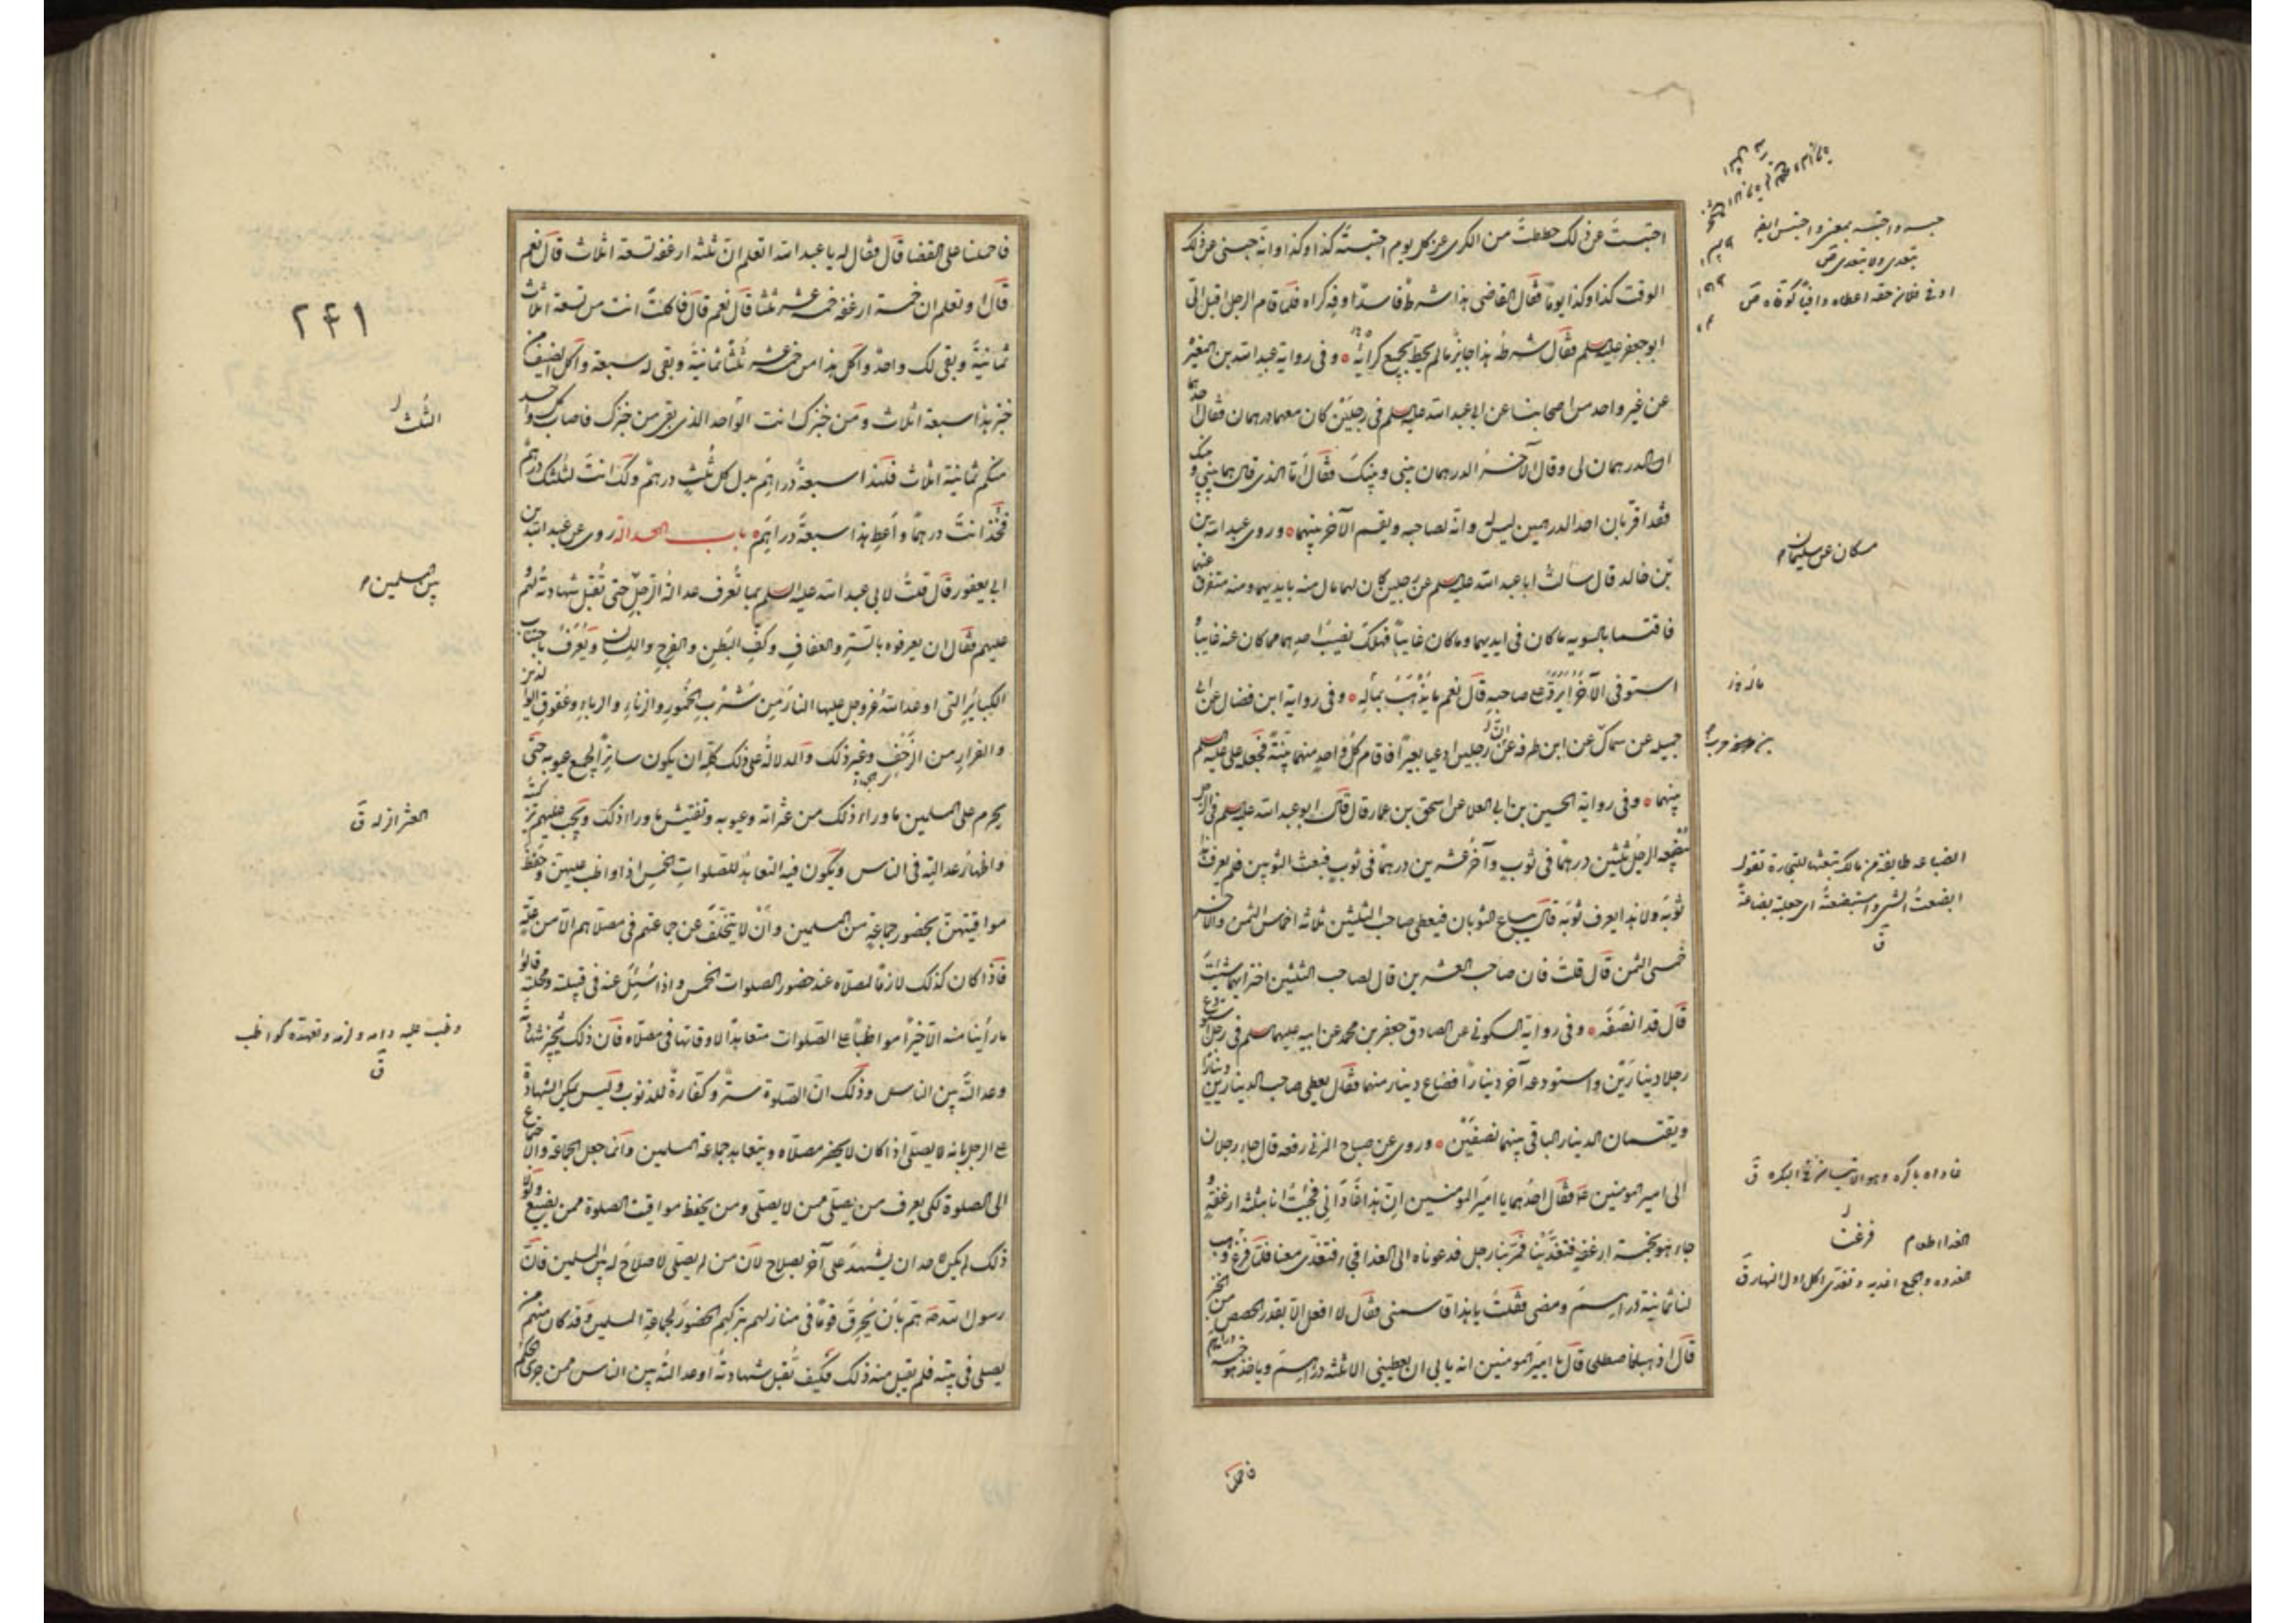 احتبست عن ذلك حططت من الكرى عن كل يوم احتبسته كذا وكذا وانه حبسنى عن ذلك
الوقت كذا وكذا يوما فقال القاضى هذا شرط فاسد اوفه كراه فلما قام الرجل اقبل الىّ
ابو جعفر عليه السلم فقال شرط هذا جايز ما لم يحط بجميع كرائه وفى رواية عبد الله بن المغيرة
عن غير واحد من اصحابنا عن ابى عبد الله عليه السلم فى رجلين كان معهما درهمان فقال احدهما
الدرهمان لى وقال الآخر الدرهمان بينى وبينك فقال اما الذى قال هما بينى وبينك
فقد اقر بان احد الدرهمين ليس له وانه لصاحبه ويقسم الآخر بينهما وروى عبد الله بن
بن خالد قال سألت ابا عبد الله عليه السلم عن رجلين كان لهما مال منه بايديهما ومنه متفرق عنهما
فاقتسما بالسويه ما كان فى ايديهما وما كان غايبا فهلك نصيب احدهما مما كان عنه غايبا و
استوفى الآخر ايرد على صاحبه قال نعم ما يذهب بماله وفى رواية ابن فضال عن ابى
جميله عن سماك عن ابن طرفه ان رجلين ادعيا بعيرا فاقام كل واحد منهما بينة فجعله على عليه السلم
بينهما وفى رواية الحسين بن ابى العلا عن اسحق بن عمار قال قال ابو عبد الله عليه السلم فى الرجل
يبضعه الرجل ثلثين درهما فى ثوب وآخر عشرين درهما فى ثوب فبعث الثوبين فلم يعرف هذا
ثوبه ولا هذا يعرف ثوبه قال يباع الثوبان فيعطى صاحب الثلثين ثلاثة اخماس الثمن والآخر
خمسى الثمن قال قلت فان صاحب العشرين قال لصاحب الثلثين اختر ايهما شئت
قال قد انصفه وفى رواية السكونى عن الصادق جعفر بن محمد عن ابيه عليهما السلم فى رجل استودع
رجلا دينارين واستودعه آخر دينارا فضاع دينار منهما فقال يعطى صاحب الدينارين دينارا
ويقتسمان الدينار الباقى بينهما نصفين وروى عن صباح المزنى رفعه قال جاء رجلان
الى امير المومنين ع فقال احدهما يا امير المؤمنين ان هذا غادانى فجئت انا بثلثة ارغفة و
جاء هو بخمسة ارغفة فتغدينا فمر بنا رجل فدعوناه الى الغدا فجاء فتغدى معنا فلما فرغ وهب
لنا ثمانية دراهم ومضى فقلت يا هذا قاسمنى فقال لا افعل الا بقدر الحصص من الخبز
قال اذهبا فاصطلحا قال يا امير المومنين انه يابى ان يعطينى الا ثلثة دراهم وياخذ هو خمسة دراهم
حبسه واحتبسه بمعنى واحتبس ايضا
يتعدى ولا يتعدى ص
اوفى فلانا حقه اعطاه وافيا كوفّاه ص
مسكان عن سليمان
ماله وز
البضاعة طايفة من مالك تبعثها للتجارة تقول
ابضعت الشىء واستبضعته اى جعلته بضاعة
ق
غاداه باكره
الغدا طعام
فرغت
الغدوه والجمع اغديه وتغدى اكل اول النهار ق
فاحملنا
فاحملنا على القضا قال فقال له يا عبد الله اتعلم ان ثلثة ارغفه تسعة اثلاث قال نعم
قال او تعلم ان خمسة ارغفه خمسة عشر ثلثا قال نعم قال فاكلت انت من تسعة اثلاث
ثمانية وبقى لك واحد واكل هذا من خمسة عشر ثلثا ثمانية وبقى له سبعة واكل الضيف من
خبز هذا سبعة اثلاث ومن خبزك انت الواحد الذى بقى من خبزك فاصاب كل واحد
منكم ثمانية اثلاث فلهذا سبعة دراهم بدل كل ثلث درهم ولك انت لثلثك درهم
فخذ انت درهما واعط هذا سبعة دراهم باب العدالة روى عن عبد الله بن
ابى يعفور قال قلت لابى عبد الله عليه السلم بما تعرف عدالة الرجل حتى تقبل شهادته لهم و
عليهم فقال ان يعرفوه بالستر والعفاف وكف البطن والفرج واليد واللسان ويعرف باجتناب
الكبائر التى اوعد الله عز وجل عليها النار من شرب الخمور والزناء والرباء وعقوق الوالدين
والفرار من الزحف وغير ذلك والدلالة على ذلك كله ان يكون ساترا لجميع عيوبه حتى
يحرم على المسلمين ما وراء ذلك من عثراته وعيوبه وتفتيش ما وراء ذلك ويجب عليهم تزكيته
واظهار عدالته فى الناس ويكون فيه التعاهد للصلوات الخمس اذا واظب عليهن وحفظ
مواقيتهن بحضور جماعة من المسلمين وان لا يتخلف عن جماعتهم فى مصلاهم الا من علة
فاذا كان كذلك لازما لمصلاه عند حضور الصلوات الخمس واذا سئل عنه فى قبيلته ومحلته قالوا
ما راينا منه الا خيرا مواظبا على الصلوات متعاهدا لاوقاتها فى مصلاه فان ذلك يجيز شهادته
وعدالته بين الناس وذلك ان الصلوة ستر وكفارة للذنوب وليس يمكن الشهادة
على الرجل بانه لا يصلى اذا كان لا يحضر مصلاه ويتعاهد جماعة المسلمين وانما جعل الجماعة والاجتماع
الى الصلوة لكى يعرف من يصلى ممن لا يصلى ومن يحفظ مواقيت الصلوة ممن يضيع ولولا
ذلك لم يمكن احد ان يشهد على آخر بصلاح لان من لم يصلى لا صلاح له بين المسلمين فان
رسول الله ص هم بان يحرق قوما فى منازلهم بتركهم الحضور لجماعة المسلمين وقد كان منهم من
يصلى فى بيته فلم يقبل منه ذلك فكيف تقبل شهادته او عدالته بين الناس ممن جرى الحكم
٢٤١
الثلث
بين المسلمين
العثر الزلة ق
وظب عليه دامه ولزمه وتعهده كواظب
ق